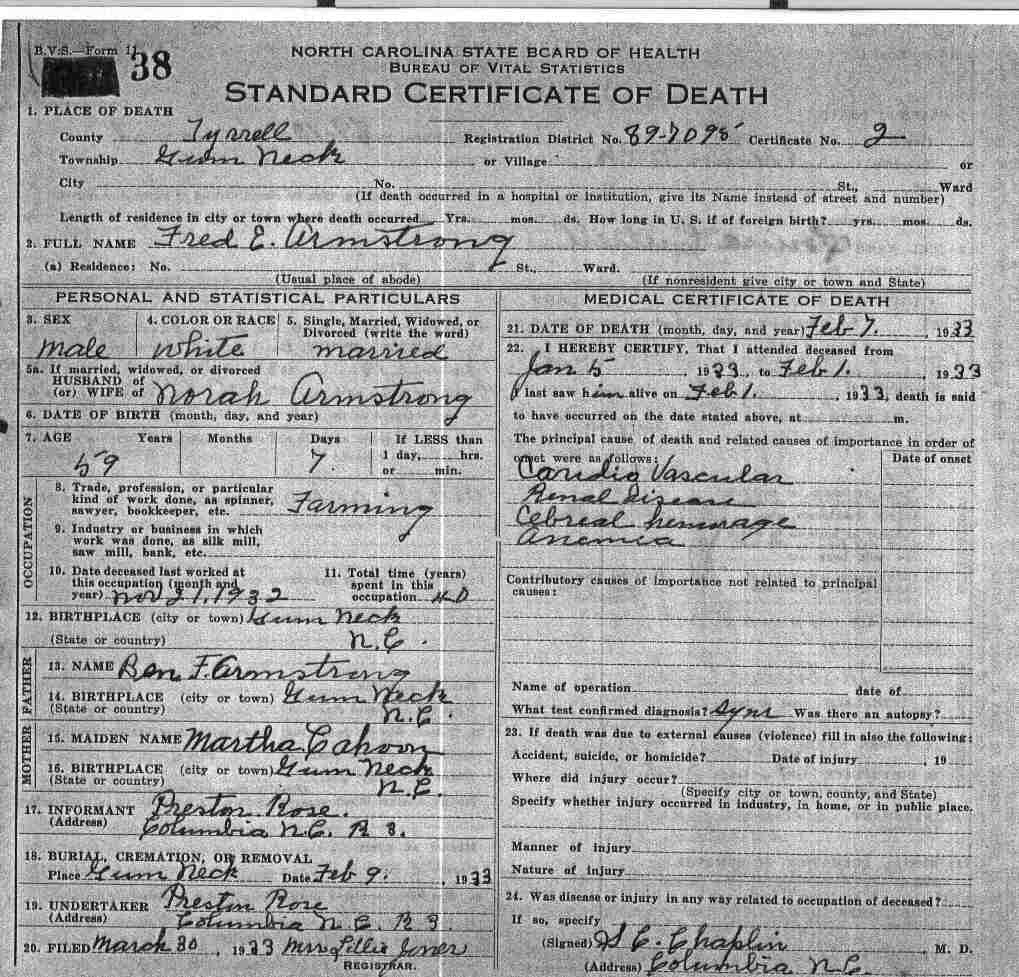 B.V.S.—Form 11
38
NORTH CAROLINA STATE BOARD OF HEALTH
BUREAU OF VITAL STATISTICS
STANDARD CERTIFICATE OF DEATH
1. PLACE OF DEATH
County Tyrrell Registration District No. 89-7095 Certificate No. 2
Township Gum Neck or Village or
City No. St., Ward
(If death occurred in a hospital or institution, give its Name instead of street and number)
Length of residence in city or town where death occurred Yrs. mos. ds. How long in U. S. if of foreign birth? yrs. mos. ds.
2. FULL NAME Fred E. Armstrong
(a) Residence: No. St., Ward.
(Usual place of abode) (If nonresident give city or town and State)
PERSONAL AND STATISTICAL PARTICULARS
3. SEX 4. COLOR OR RACE 5. Single, Married, Widowed, or
Divorced (write the word)
male white married
5a. If married, widowed, or divorced
HUSBAND of
(or) WIFE of Norah Armstrong
6. DATE OF BIRTH (month, day, and year)
7. AGE Years Months Days If LESS than
1 day, hrs.
59 7 or min.
OCCUPATION
8. Trade, profession, or particular
kind of work done, as spinner,
sawyer, bookkeeper, etc. Farming
9. Industry or business in which
work was done, as silk mill,
saw mill, bank, etc.
10. Date deceased last worked at
this occupation (month and
year) Nov 21, 1932
11. Total time (years)
spent in this
occupation 40
12. BIRTHPLACE (city or town) Gum Neck
(State or country) N.C.
FATHER
13. NAME Ben F. Armstrong
14. BIRTHPLACE (city or town) Gum Neck
(State or country) N.C.
MOTHER
15. MAIDEN NAME Martha Cahoon
16. BIRTHPLACE (city or town) Gum Neck
(State or country) N.C.
17. INFORMANT Preston Rose.
(Address) Columbia N.C. R 3.
18. BURIAL, CREMATION, OR REMOVAL
Place Gum Neck Date Feb 9. , 1933
19. UNDERTAKER Preston Rose
(Address) Columbia N.C. R 3
20. FILED March 30 , 1933 Mrs Lillie Jones
REGISTRAR.
MEDICAL CERTIFICATE OF DEATH
21. DATE OF DEATH (month, day, and year) Feb 7. , 1933
22. I HEREBY CERTIFY, That I attended deceased from
Jan 5 , 1933, to Feb 1. , 1933
I last saw him alive on Feb 1. , 1933, death is said
to have occurred on the date stated above, at m.
The principal cause of death and related causes of importance in order of
onset were as follows: Date of onset
Caridio Vascular
Renal Disease
Cebreal hemorage
Anemia
Contributory causes of importance not related to principal
causes:
Name of operation date of
What test confirmed diagnosis? Was there an autopsy?
23. If death was due to external causes (violence) fill in also the following:
Accident, suicide, or homicide? Date of injury , 19
Where did injury occur?
(Specify city or town, county, and State)
Specify whether injury occurred in industry, in home, or in public place.
Manner of injury
Nature of injury
24. Was disease or injury in any way related to occupation of deceased?
If so, specify
(Signed) Chaplin M. D.
(Address) Columbia N.C.